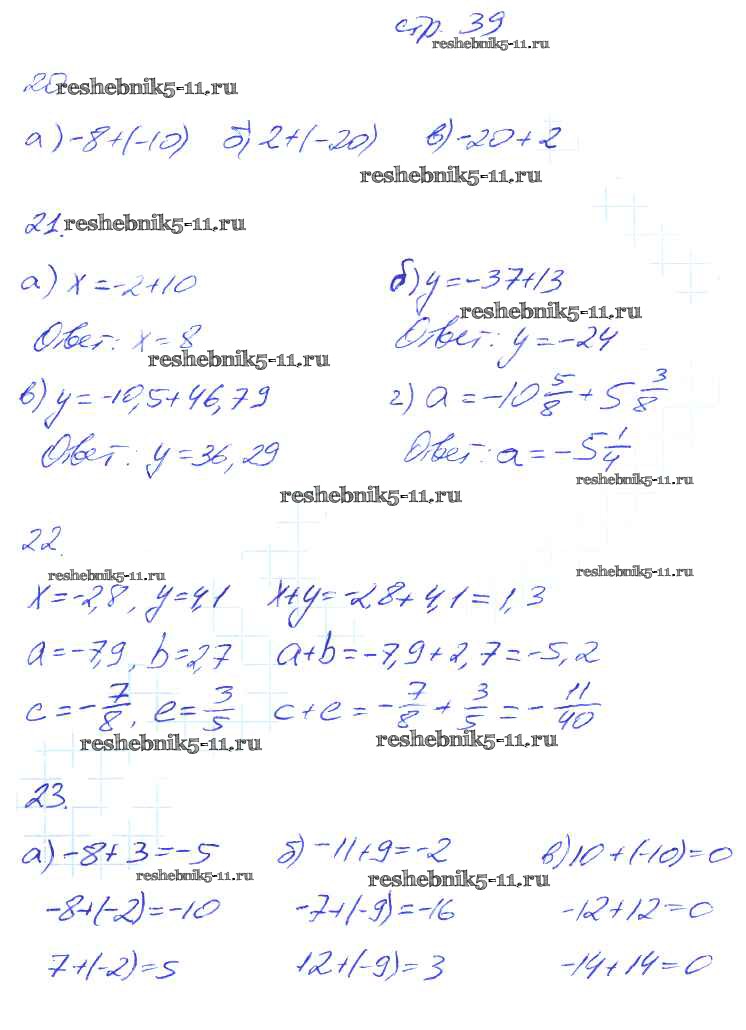 стр. 39
reshebnik5-11.ru
20. reshebnik5-11.ru
а) -8+(-10) б) 2+(-20) в) -20+2
reshebnik5-11.ru
21. reshebnik5-11.ru
а) x=-2+10 б) y=-37+13
reshebnik5-11.ru
Ответ: x=8 Ответ: y=-24
reshebnik5-11.ru
в) y=-10,5+46,79 г) a=-10 5/8 + 5 3/8
Ответ: y=36,29 Ответ: a=-5 1/4
reshebnik5-11.ru
reshebnik5-11.ru
22.
reshebnik5-11.ru reshebnik5-11.ru
x=-2,8, y=4,1 x+y=-2,8+4,1=1,3
a=-7,9, b=2,7 a+b=-7,9+2,7=-5,2
c=-7/8, e=3/5 c+e=-7/8+3/5=-11/40
reshebnik5-11.ru reshebnik5-11.ru
23.
а) -8+3=-5 б) -11+9=-2 в) 10+(-10)=0
reshebnik5-11.ru reshebnik5-11.ru
-8+(-2)=-10 -7+(-9)=-16 -12+12=0
7+(-2)=5 12+(-9)=3 -14+14=0